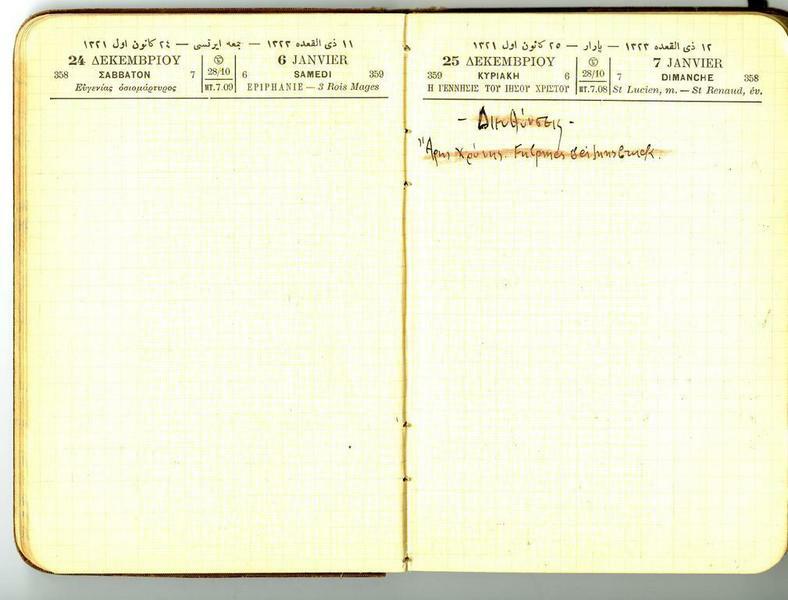 ١١ ذی القعده ١٣٢٣ — جمعه ایرتسی — ٢٤ كانون اول ١٣٢١
24 ΔΕΚΕΜΒΡΙΟΥ
6 JANVIER
358 ΣΑΒΒΑΤΟΝ 7
28/10
6 SAMEDI 359
Εὐγενίας ὁσιομάρτυρος
MT.7.09
EPIPHANIE — 3 Rois Mages
١٢ ذی القعده ١٣٢٣ — پازار — ٢٥ كانون اول ١٣٢١
25 ΔΕΚΕΜΒΡΙΟΥ
7 JANVIER
359 ΚΥΡΙΑΚΗ 6
28/10
7 DIMANCHE 358
Η ΓΕΝΝΗΣΙΣ ΤΟΥ ΙΗΣΟΥ ΧΡΙΣΤΟΥ
MT.7.08
St Lucien, m. — St Renaud, év.
- Διευθύνσεις -
bei Innsbruck.